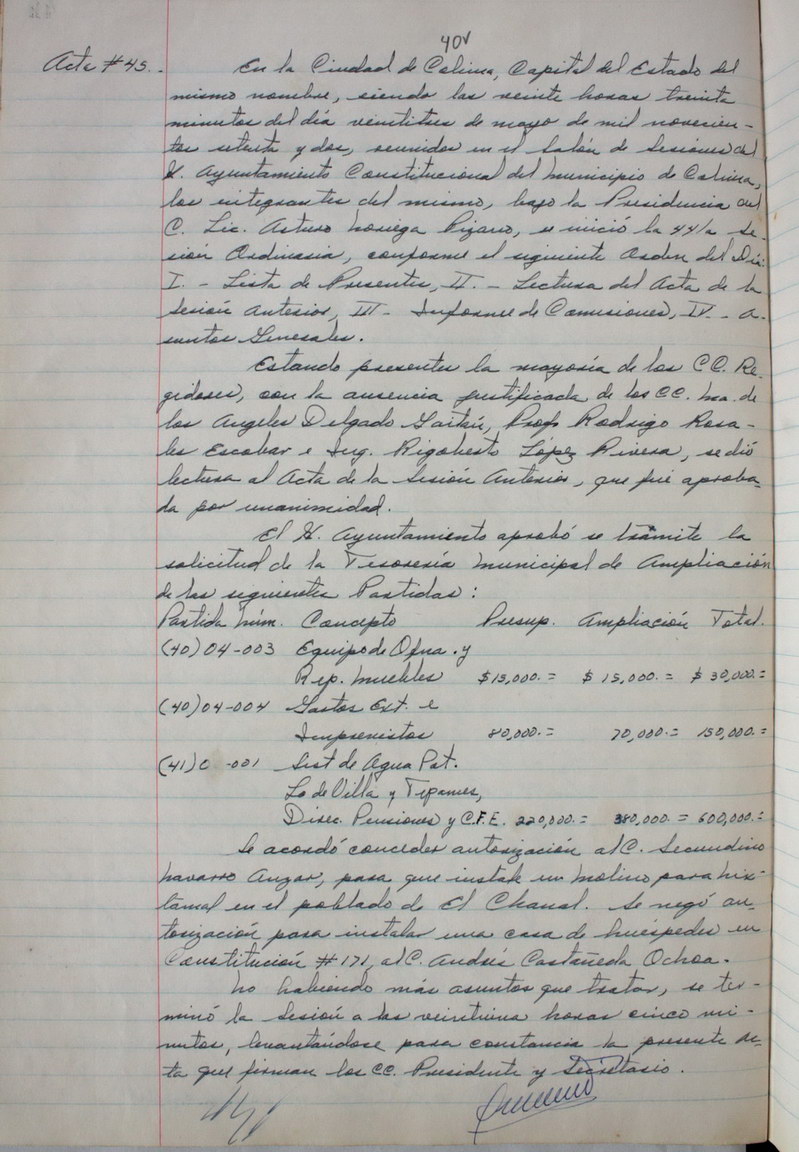 40v
Acta # 45.-
En la Ciudad de Colima, Capital del Estado del
mismo nombre, siendo las veinte horas treinta
minutos del día veintitres de mayo de mil novecien-
tos setenta y dos, reunidos en el Salón de Sesiones del
H. Ayuntamiento Constitucional del Municipio de Colima,
los integrantes del mismo, bajo la Presidencia del
C. Lic. Arturo Noriega Pizano, se inició la 44/a Se-
sión Ordinaria, conforme el siguiente Orden del Día:
I.- Lista de Presentes, II.- Lectura del Acta de la
Sesión Anterior, III- Informe de Comisiones, IV- A-
suntos Generales.
Estando presentes la mayoría de los CC. Re-
gidores, con la ausencia justificada de los CC. Ma. de
los Angeles Delgado Gaitán, Profr Rodrigo Rosa-
les Escobar e Ing. Rigoberto López Rivera, se dió
lectura al Acta de la Sesión Anterior, que fué aproba-
da por unanimidad.
El H. Ayuntamiento aprobó se trámite la
solicitud de la Tesorería Municipal de Ampliación
de las siguientes Partidas:
Partida Núm. Concepto Presup. Ampliación Total.
(40) 04-003 Equipo de Ofna. y
Rep. Muebles $15,000.= $15,000.= $30,000.=
(40) 04-004 Gastos Ext. e
Imprevistos 80,000.= 70,000.= 150,000.=
(41) C -001 Sist de Agua Pot.
Lo de Villa y Tepames,
Direc. Pensiones y C.F.E. 220,000.= 380,000.= 600,000.=
Se acordó conceder autorización al C. Secundino
Navarro Anzar, para que instale un Molino para nix-
tamal en el poblado de El Chanal. Se negó au-
torización para instalar una casa de huéspedes en
Constitución # 171, al C. Andrés Castañeda Ochoa.
No habiendo más asuntos que tratar, se ter-
minó la Sesión a las veintiuna horas cinco mi-
nutos, levantándose para constancia la presente Ac-
ta que firman los CC. Presidente y Secretario.